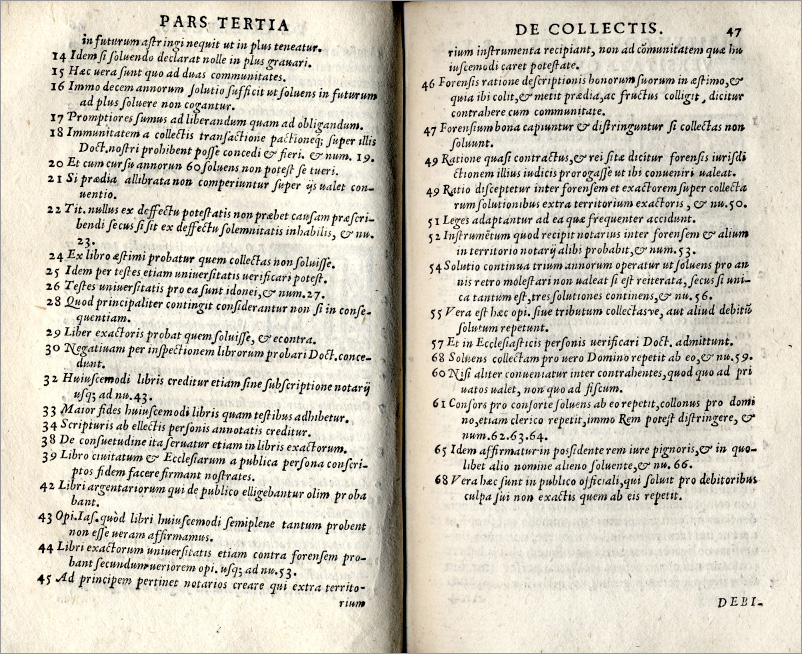 PARS TERTIA
in futurum aſtringi nequit ut in plus teneatur.
14 Idem ſi ſoluendo declarat nolle in plus grauari.
15 Hæc uera ſunt quo ad duas communitates.
16 Immo decem annorum ſolutio ſufficit ut ſoluens in futurum
ad plus ſoluere non cogantur.
17 Promptiores ſumus ad liberandum quam ad obligandum.
18 Immunitatem a collectis tranſactione pactioneq; ſuper illis
Doct.noſtri prohibent poſſe concedi & fieri. & num. 19.
20 Et cum curſu annorum 60 ſoluens non poteſt ſe tueri.
21 Si prædia allibrata non comperiuntur ſuper ijs ualet con-
uentio.
22 Tit. nullus ex deffectu poteſtatis non præbet cauſam præſcri-
bendi ſecus ſi ſit ex deffectu ſolemnitatis inhabilis, & nu.
23.
24 Ex libro æſtimi probatur quem collectas non ſoluiſſe.
25 Idem per teſtes etiam uniuerſitatis uerificari poteſt.
26 Teſtes uniuerſitatis pro ea ſunt idonei,& num.27.
28 Quod principaliter contingit conſiderantur non ſi in conſe-
quentiam.
29 Liber exactoris probat quem ſoluiſſe, & econtra.
30 Negatiuam per inſpectionem librorum probari Doct.conce-
dunt.
32 Huiuſcemodi libris creditur etiam ſine ſubſcriptione notarij
uſq; ad nu.43.
33 Maior fides huiuſcemodi libris quam teſtibus adhibetur.
34 Scripturis ab ellectis perſonis annotatis creditur.
38 De conſuetudine ita ſeruatur etiam in libris exactorum.
39 Libro ciuitatum & Eccleſiarum a publica perſona conſcri-
ptos fidem facere firmant noſtrates.
42 Libri argentariorum qui de publico elligebantur olim proba
bant.
43 Opi.Iaſ.quòd libri huiuſcemodi ſemiplene tantum probent
non eſſe ueram affirmamus.
44 Libri exactorum uniuerſitatis etiam contra forenſem pro-
bant ſecundum ueriorem opi. uſq; ad nu.53.
45 Ad principem pertinet notarios creare qui extra territo-
rium
DE COLLECTIS. 47
rium inſtrumenta recipiant, non ad cõmunitatem quæ hu
iuſcemodi caret poteſtate.
46 Forenſis ratione deſcriptionis bonorum ſuorum in æſtimo,&
quia ibi colit,& metit prædia,ac fructus colligit, dicitur
contrahere cum communitate.
47 Forenſium bona capiuntur & diſtringuntur ſi collectas non
ſoluunt.
49 Ratione quaſi contractus,& rei ſitæ dicitur forenſis iuriſdi
ctionem illius iudicis prorogaſſe ut ibi conueniri ualeat.
49 Ratio diſceptetur inter forenſem et exactorem ſuper collecta
rum ſolutionibus extra territorium exactoris, & nu.50.
51 Leges adaptantur ad ea quæ frequenter accidunt.
52 Inſtrumẽtum quod recipit notarius inter forenſem & alium
in territorio notarij alibi probabit,& num.53.
54 Solutio continua trium annorum operatur ut ſoluens pro an
nis retro moleſtari non ualeat ſi eſt reiterata, ſecus ſi uni-
ca tantum eſt,tres ſolutiones continens,& nu.56.
55 Vera eſt hæc opi. ſiue tributum collectasve, aut aliud debitũ
ſolutum repetunt.
57 Et in Eccleſiaſticis perſonis uerificari Doct. admittunt.
68 Soluens collectam pro uero Domino repetit ab eo,& nu.59.
60 Niſi aliter conueniatur inter contrahentes,quod quo ad pri
uatos ualet, non quo ad fiſcum.
61 Conſors pro conſorte ſoluens ab eo repetit,collonus pro domi
no,etiam clerico repetit,immo Rem poteſt diſtringere, &
num.62.63.64.
65 Idem affirmatur in poſſidente rem iure pignoris,& in quo-
libet alio nomine alieno ſoluente,& nu. 66.
68 Vera hæc ſunt in publico officiali,qui ſoluit pro debitoribus
culpa ſui non exactis quem ab eis repetit.
DEBI-